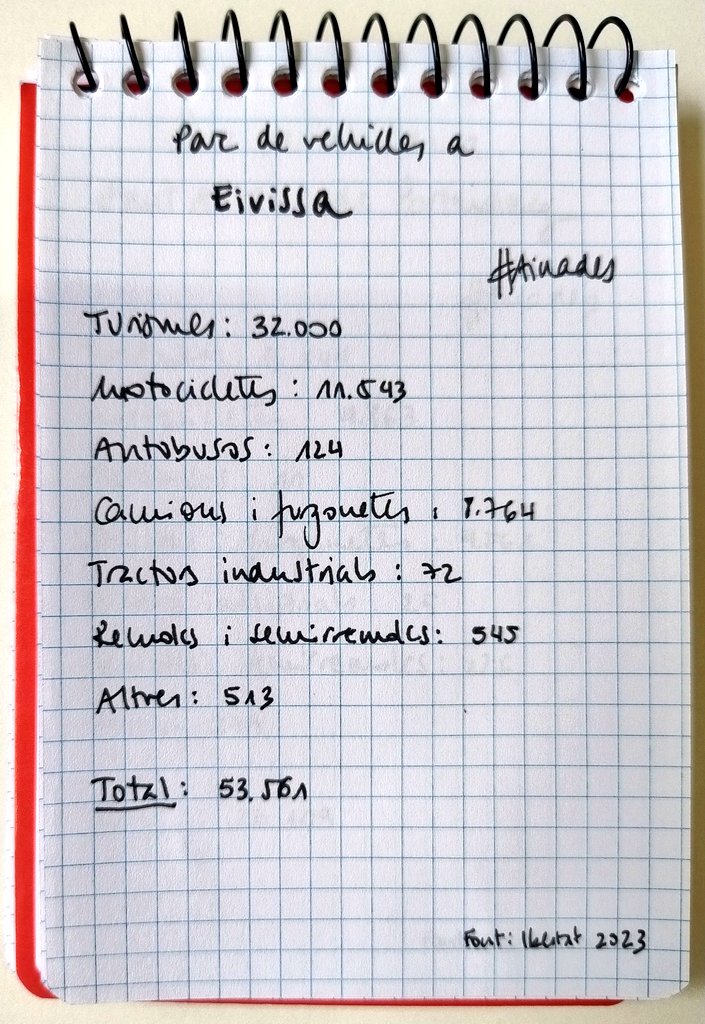 Parc de vehicles a
Eivissa
#Ainades
Turismes: 32.000
Motocicletes: 11.543
Autobusos: 124
Camions i furgonetes: 8.764
Tractors industrials: 72
Remolcs i semirremolcs: 545
Altres: 513
Total: 53.561
Font: Ibestat 2023